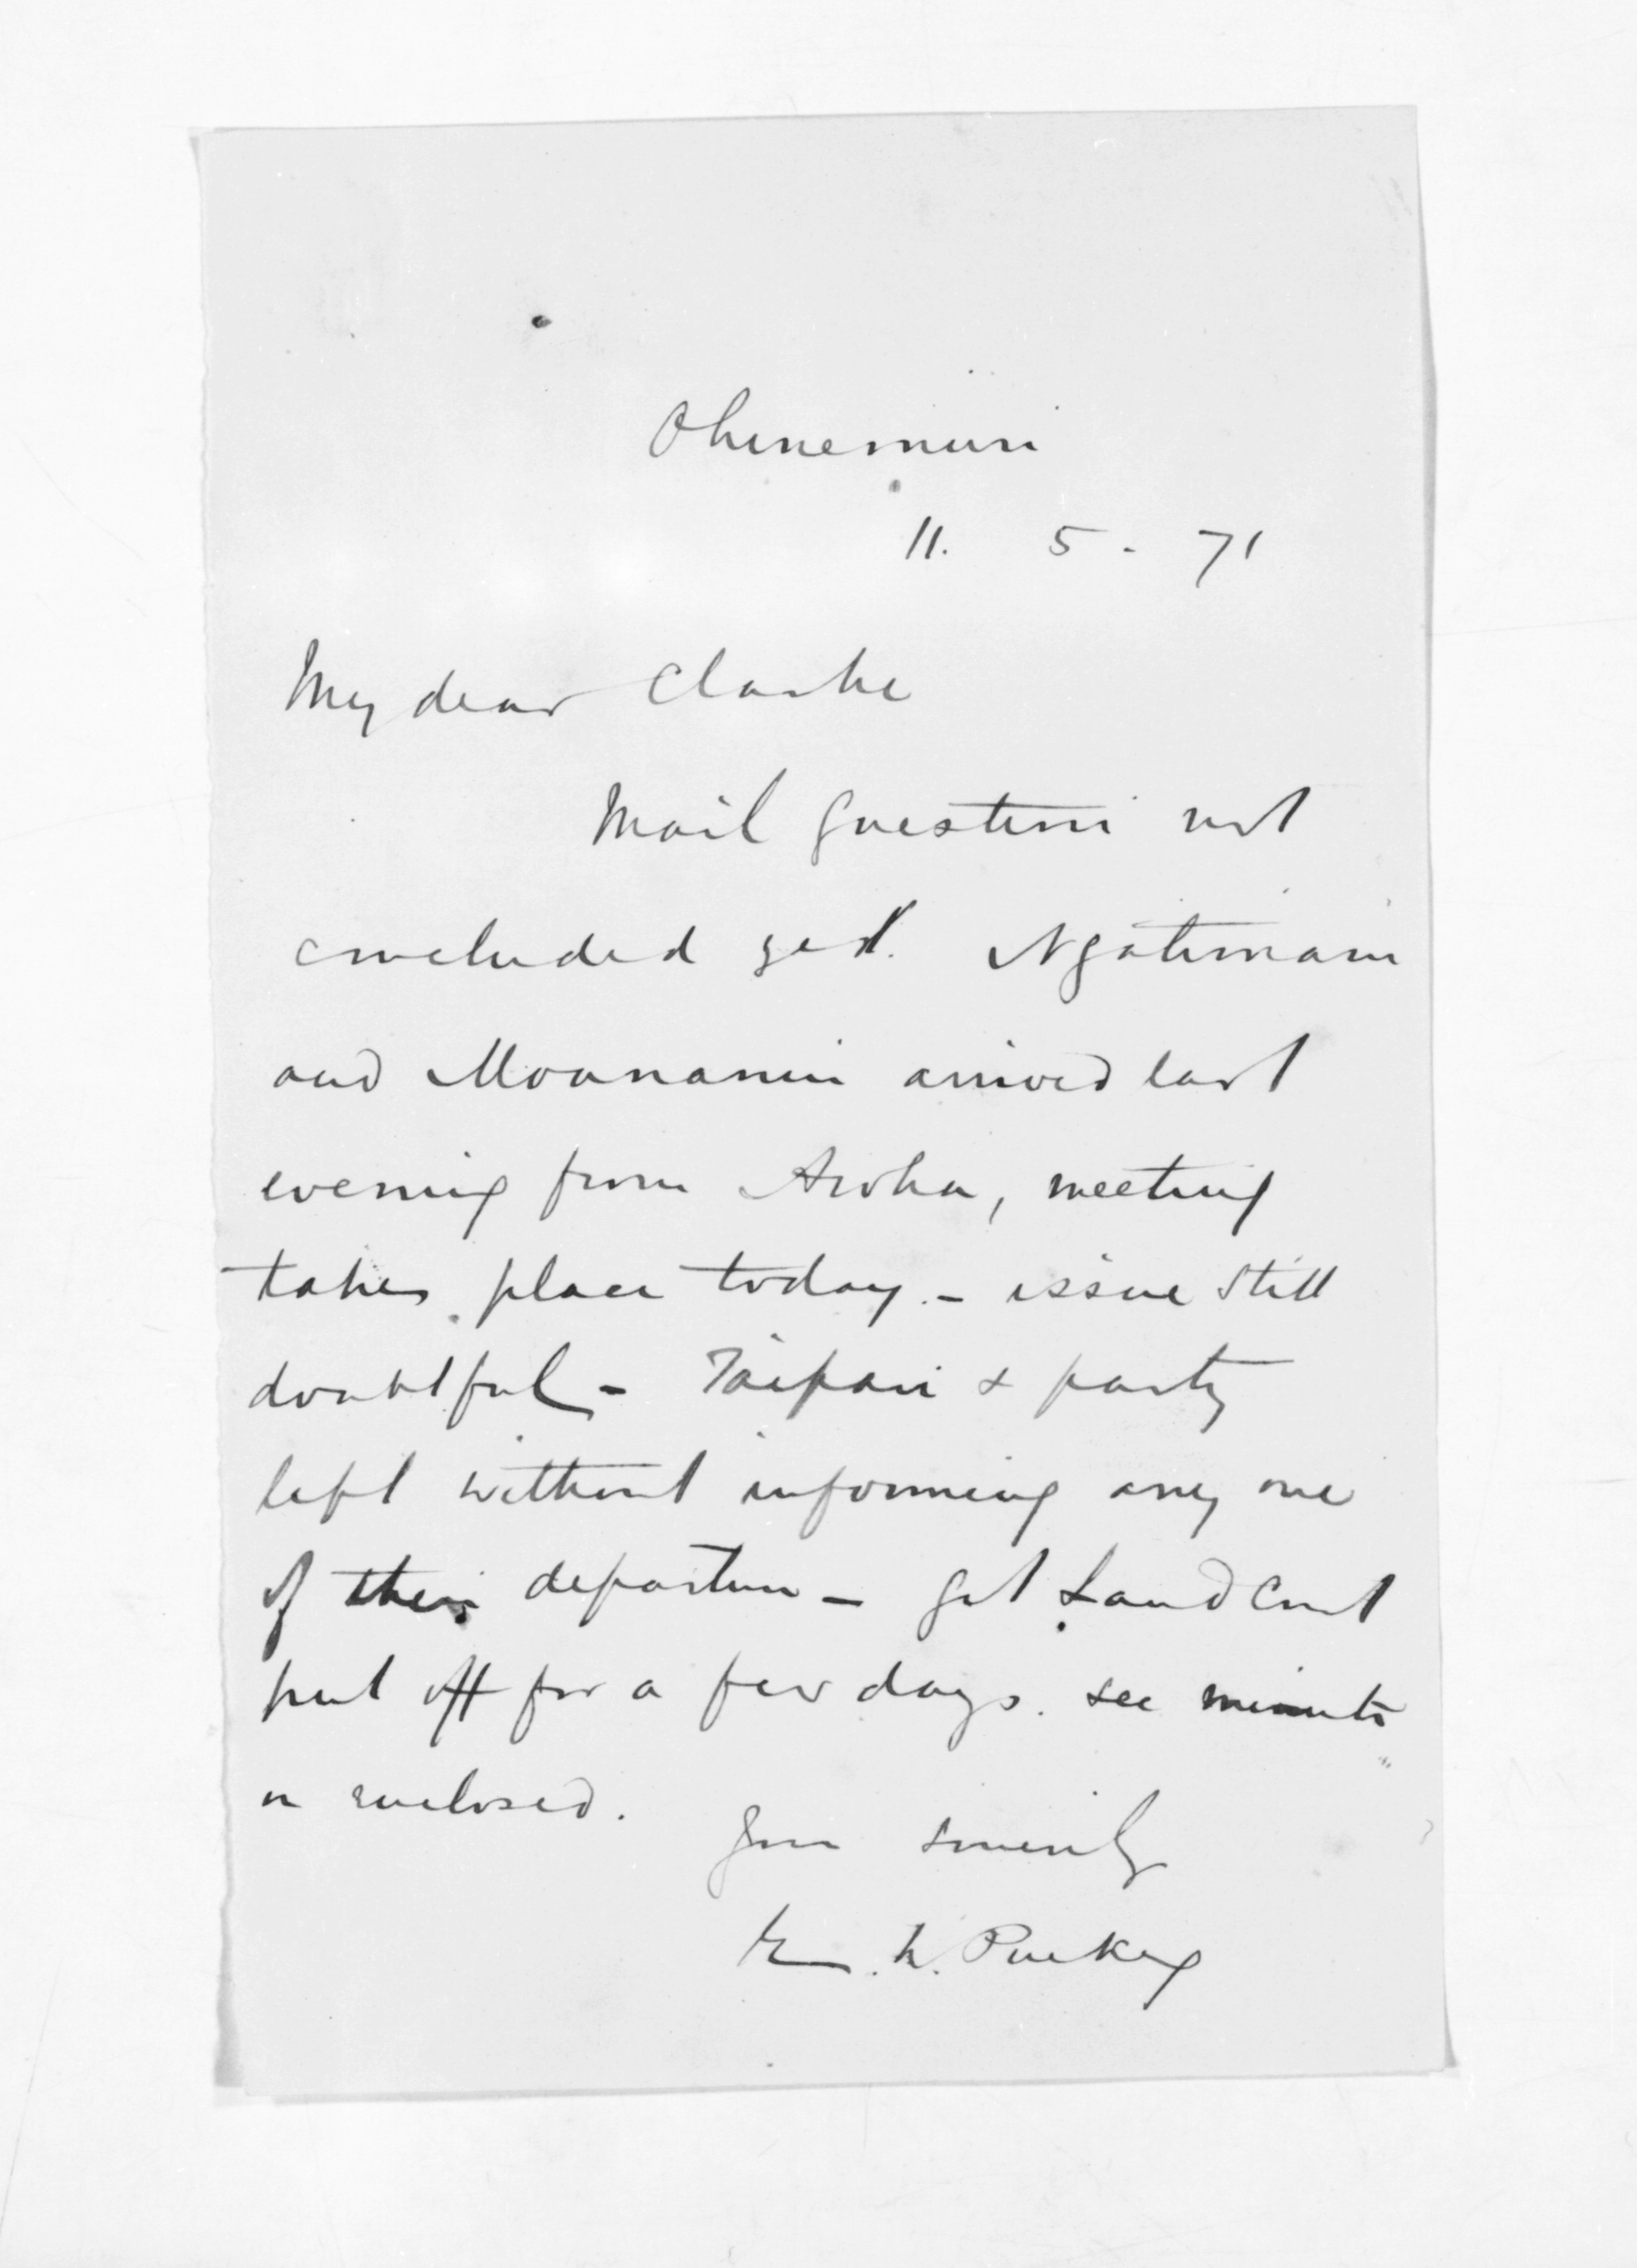 Ohinemuri
11. 5 - 71
My dear Clarke
Mail question not
concluded yet. Ngatimaru
and Moananui arrived last
evening from Aroha, meeting
takes place today. - issue still
doubtful - Taipari & party
left without informing any one
of their departure - get Land Court
put off for a few days. see minute
on enclosed.
Yours sincerely
E. W. Puckey